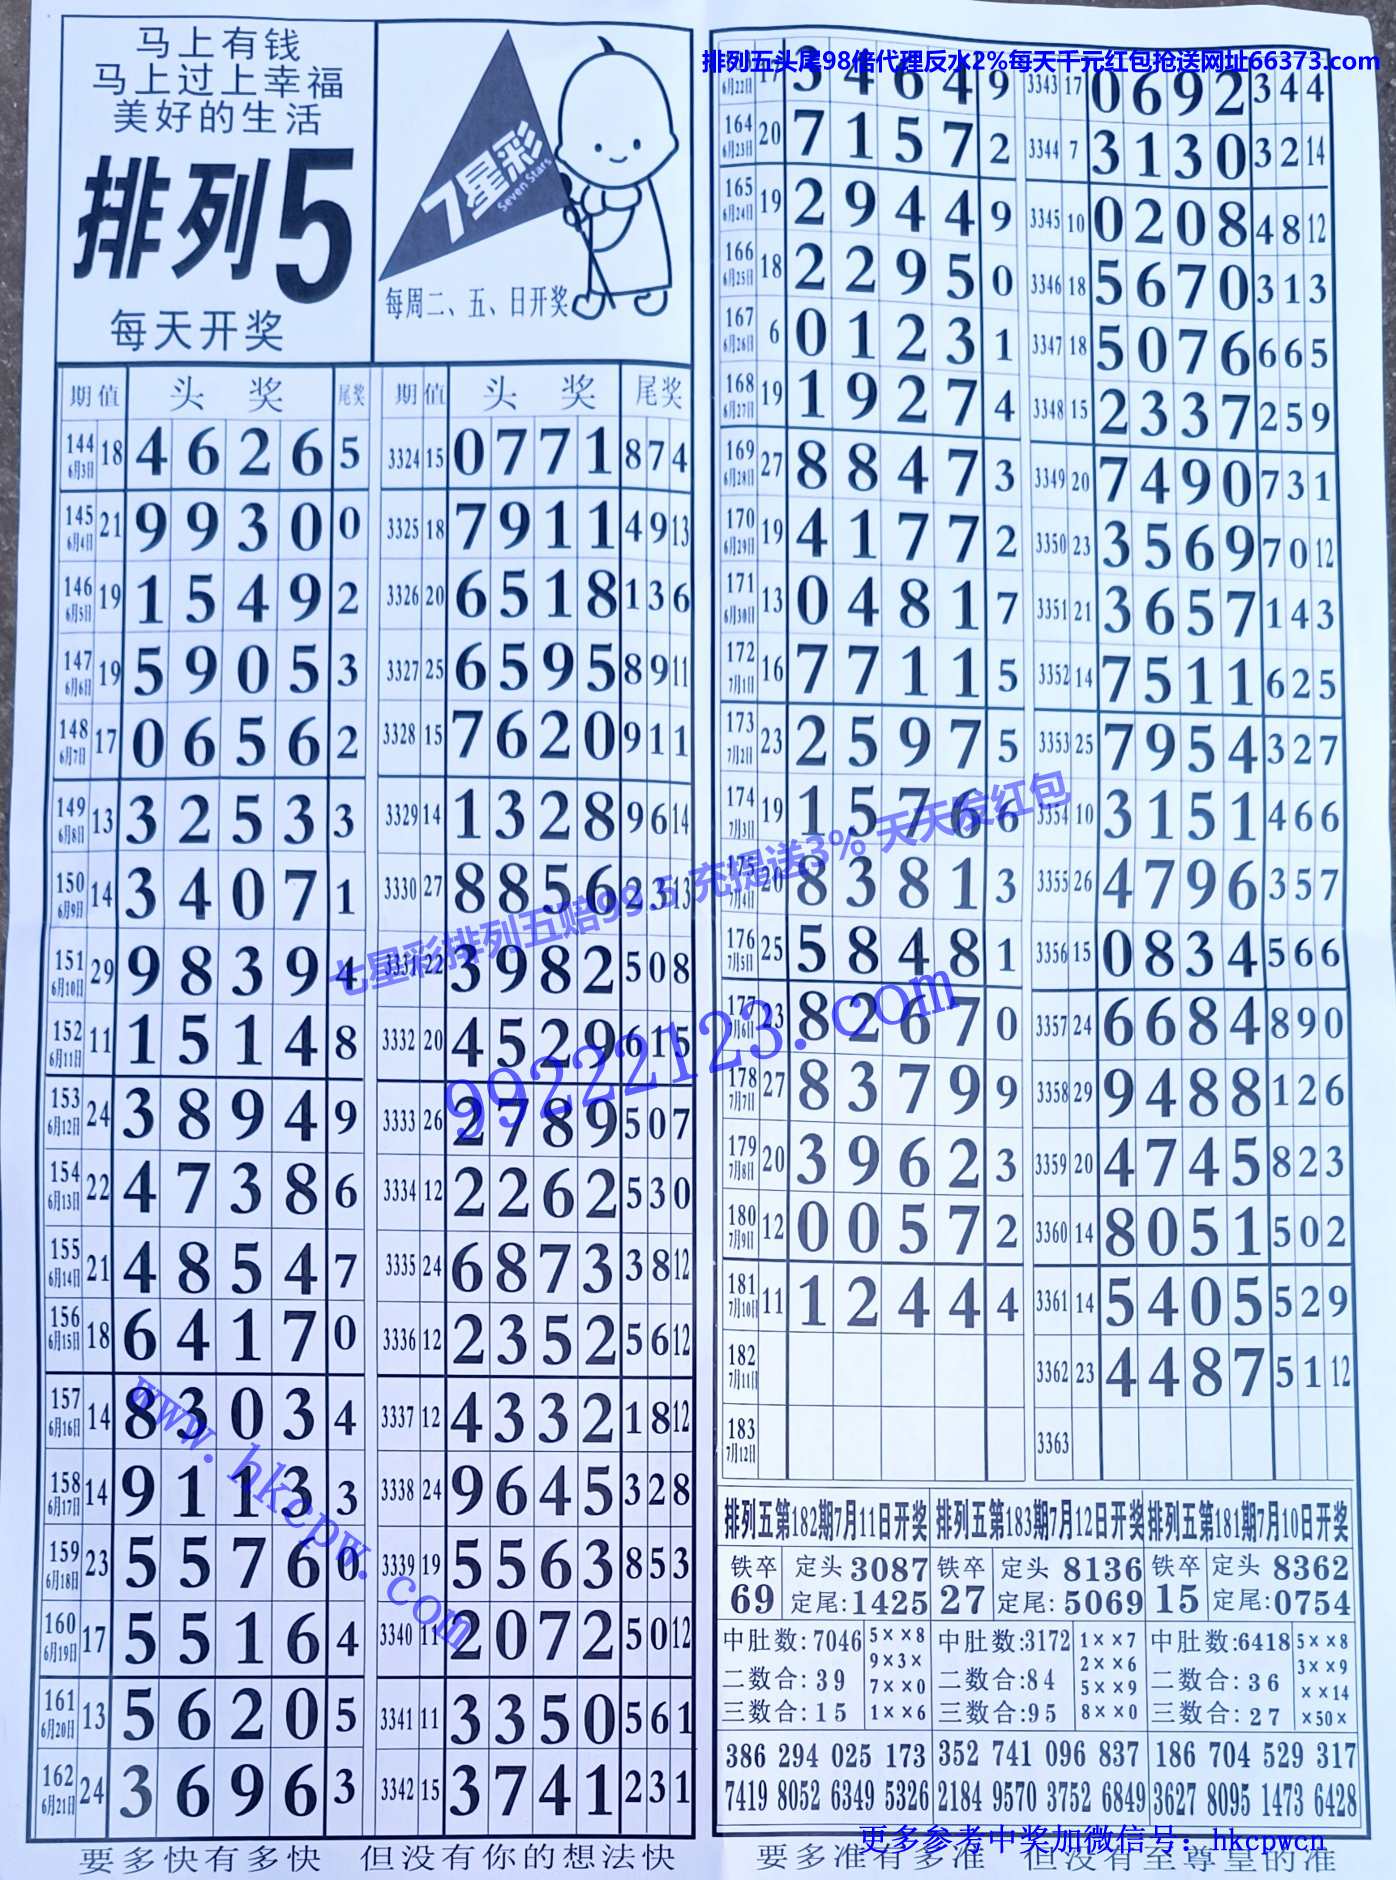 马上有钱
马上过上幸福
美好的生活
排列5
每天开奖
7星彩
Seven Stars
每周二、五、日开奖
期 值 头 奖 尾奖 期 值 头 奖 尾奖
144 6月3日 18 4 6 2 6 5 3324 15 0 7 7 1 8 7 4
145 6月4日 21 9 9 3 0 0 3325 18 7 9 1 1 4 9 13
146 6月5日 19 1 5 4 9 2 3326 20 6 5 1 8 1 3 6
147 6月6日 19 5 9 0 5 3 3327 25 6 5 9 5 8 9 11
148 6月7日 17 0 6 5 6 2 3328 15 7 6 2 0 9 1 1
149 6月8日 13 3 2 5 3 3 3329 14 1 3 2 8 9 6 14
150 6月9日 14 3 4 0 7 1 3330 27 8 8 5 6 2 3 13
151 6月10日 29 9 8 3 9 4 3331 22 3 9 8 2 5 0 8
152 6月11日 11 1 5 1 4 8 3332 20 4 5 2 9 6 1 5
153 6月12日 24 3 8 9 4 9 3333 26 2 7 8 9 5 0 7
154 6月13日 22 4 7 3 8 6 3334 12 2 2 6 2 5 3 0
155 6月14日 21 4 8 5 4 7 3335 24 6 8 7 3 3 8 12
156 6月15日 18 6 4 1 7 0 3336 12 2 3 5 2 5 6 12
157 6月16日 14 8 3 0 3 4 3337 12 4 3 3 2 1 8 12
158 6月17日 14 9 1 1 3 3 3338 24 9 6 4 5 3 2 8
159 6月18日 23 5 5 7 6 0 3339 19 5 5 6 3 8 5 3
160 6月19日 17 5 5 1 6 4 3340 11 2 0 7 2 5 0 12
161 6月20日 13 5 6 2 0 5 3341 11 3 3 5 0 5 6 1
162 6月21日 24 3 6 9 6 3 3342 15 3 7 4 1 2 3 1
要多快有多快 但没有你的想法快
排列五头尾98倍代理反水2%每天千元红包抢送网址66373.com
6月22日 17 3 4 6 4 9 3343 17 0 6 9 2 3 4 4
164 6月23日 20 7 1 5 7 2 3344 7 3 1 3 0 3 2 14
165 6月24日 19 2 9 4 4 9 3345 10 0 2 0 8 4 8 12
166 6月25日 18 2 2 9 5 0 3346 18 5 6 7 0 3 1 3
167 6月26日 6 0 1 2 3 1 3347 18 5 0 7 6 6 6 5
168 6月27日 19 1 9 2 7 4 3348 15 2 3 3 7 2 5 9
169 6月28日 27 8 8 4 7 3 3349 20 7 4 9 0 7 3 1
170 6月29日 19 4 1 7 7 2 3350 23 3 5 6 9 7 0 12
171 6月30日 13 0 4 8 1 7 3351 21 3 6 5 7 1 4 3
172 7月1日 16 7 7 1 1 5 3352 14 7 5 1 1 6 2 5
173 7月2日 23 2 5 9 7 5 3353 25 7 9 5 4 3 2 7
174 7月3日 19 1 5 7 6 6 3354 10 3 1 5 1 4 6 6
175 7月4日 20 8 3 8 1 3 3355 26 4 7 9 6 3 5 7
176 7月5日 25 5 8 4 8 1 3356 15 0 8 3 4 5 6 6
177 7月6日 23 8 2 6 7 0 3357 24 6 6 8 4 8 9 0
178 7月7日 27 8 3 7 9 9 3358 29 9 4 8 8 1 2 6
179 7月8日 20 3 9 6 2 3 3359 20 4 7 4 5 8 2 3
180 7月9日 12 0 0 5 7 2 3360 14 8 0 5 1 5 0 2
181 7月10日 11 1 2 4 4 4 3361 14 5 4 0 5 5 2 9
182 7月11日 3362 23 4 4 8 7 5 1 12
183 7月12日 3363
排列五第182期7月11日开奖 排列五第183期7月12日开奖 排列五第181期7月10日开奖
铁卒 定头 3087 铁卒 定头 8136 铁卒 定头 8362
69 定尾:1425 27 定尾:5069 15 定尾:0754
中肚数:7046 5××8 中肚数:3172 1××7 中肚数:6418 5××8
二数合:39 9×3× 二数合:84 2××6 二数合:36 3××9
7××0 5××9 ××14
三数合:15 1××6 三数合:95 8××0 三数合:27 ×50×
386 294 025 173 352 741 096 837 186 704 529 317
7419 8052 6349 5326 2184 9570 3752 6849 3627 8095 1473 6428
更多参考中奖加微信号：hkcpwcn
要多准有多准 但没有至尊皇的准
七星彩排列五赔99.5 充提送3% 天天发红包
99222123.com
www.hkcpw.com